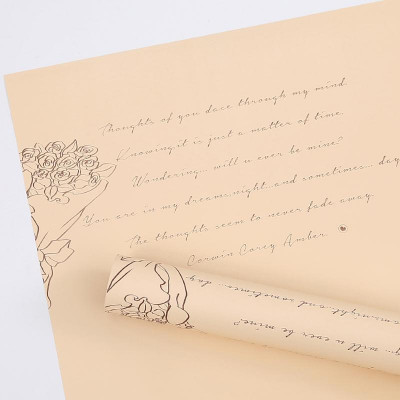 Thoughts of you dace through my mind
Knowing it is just a matter of time
Wondering, will u ever be mine?
You are in my dreams, night and sometimes day
The thoughts seem to never fade away
Corwin Corey Amber
night and sometimes day
will u ever be mine?